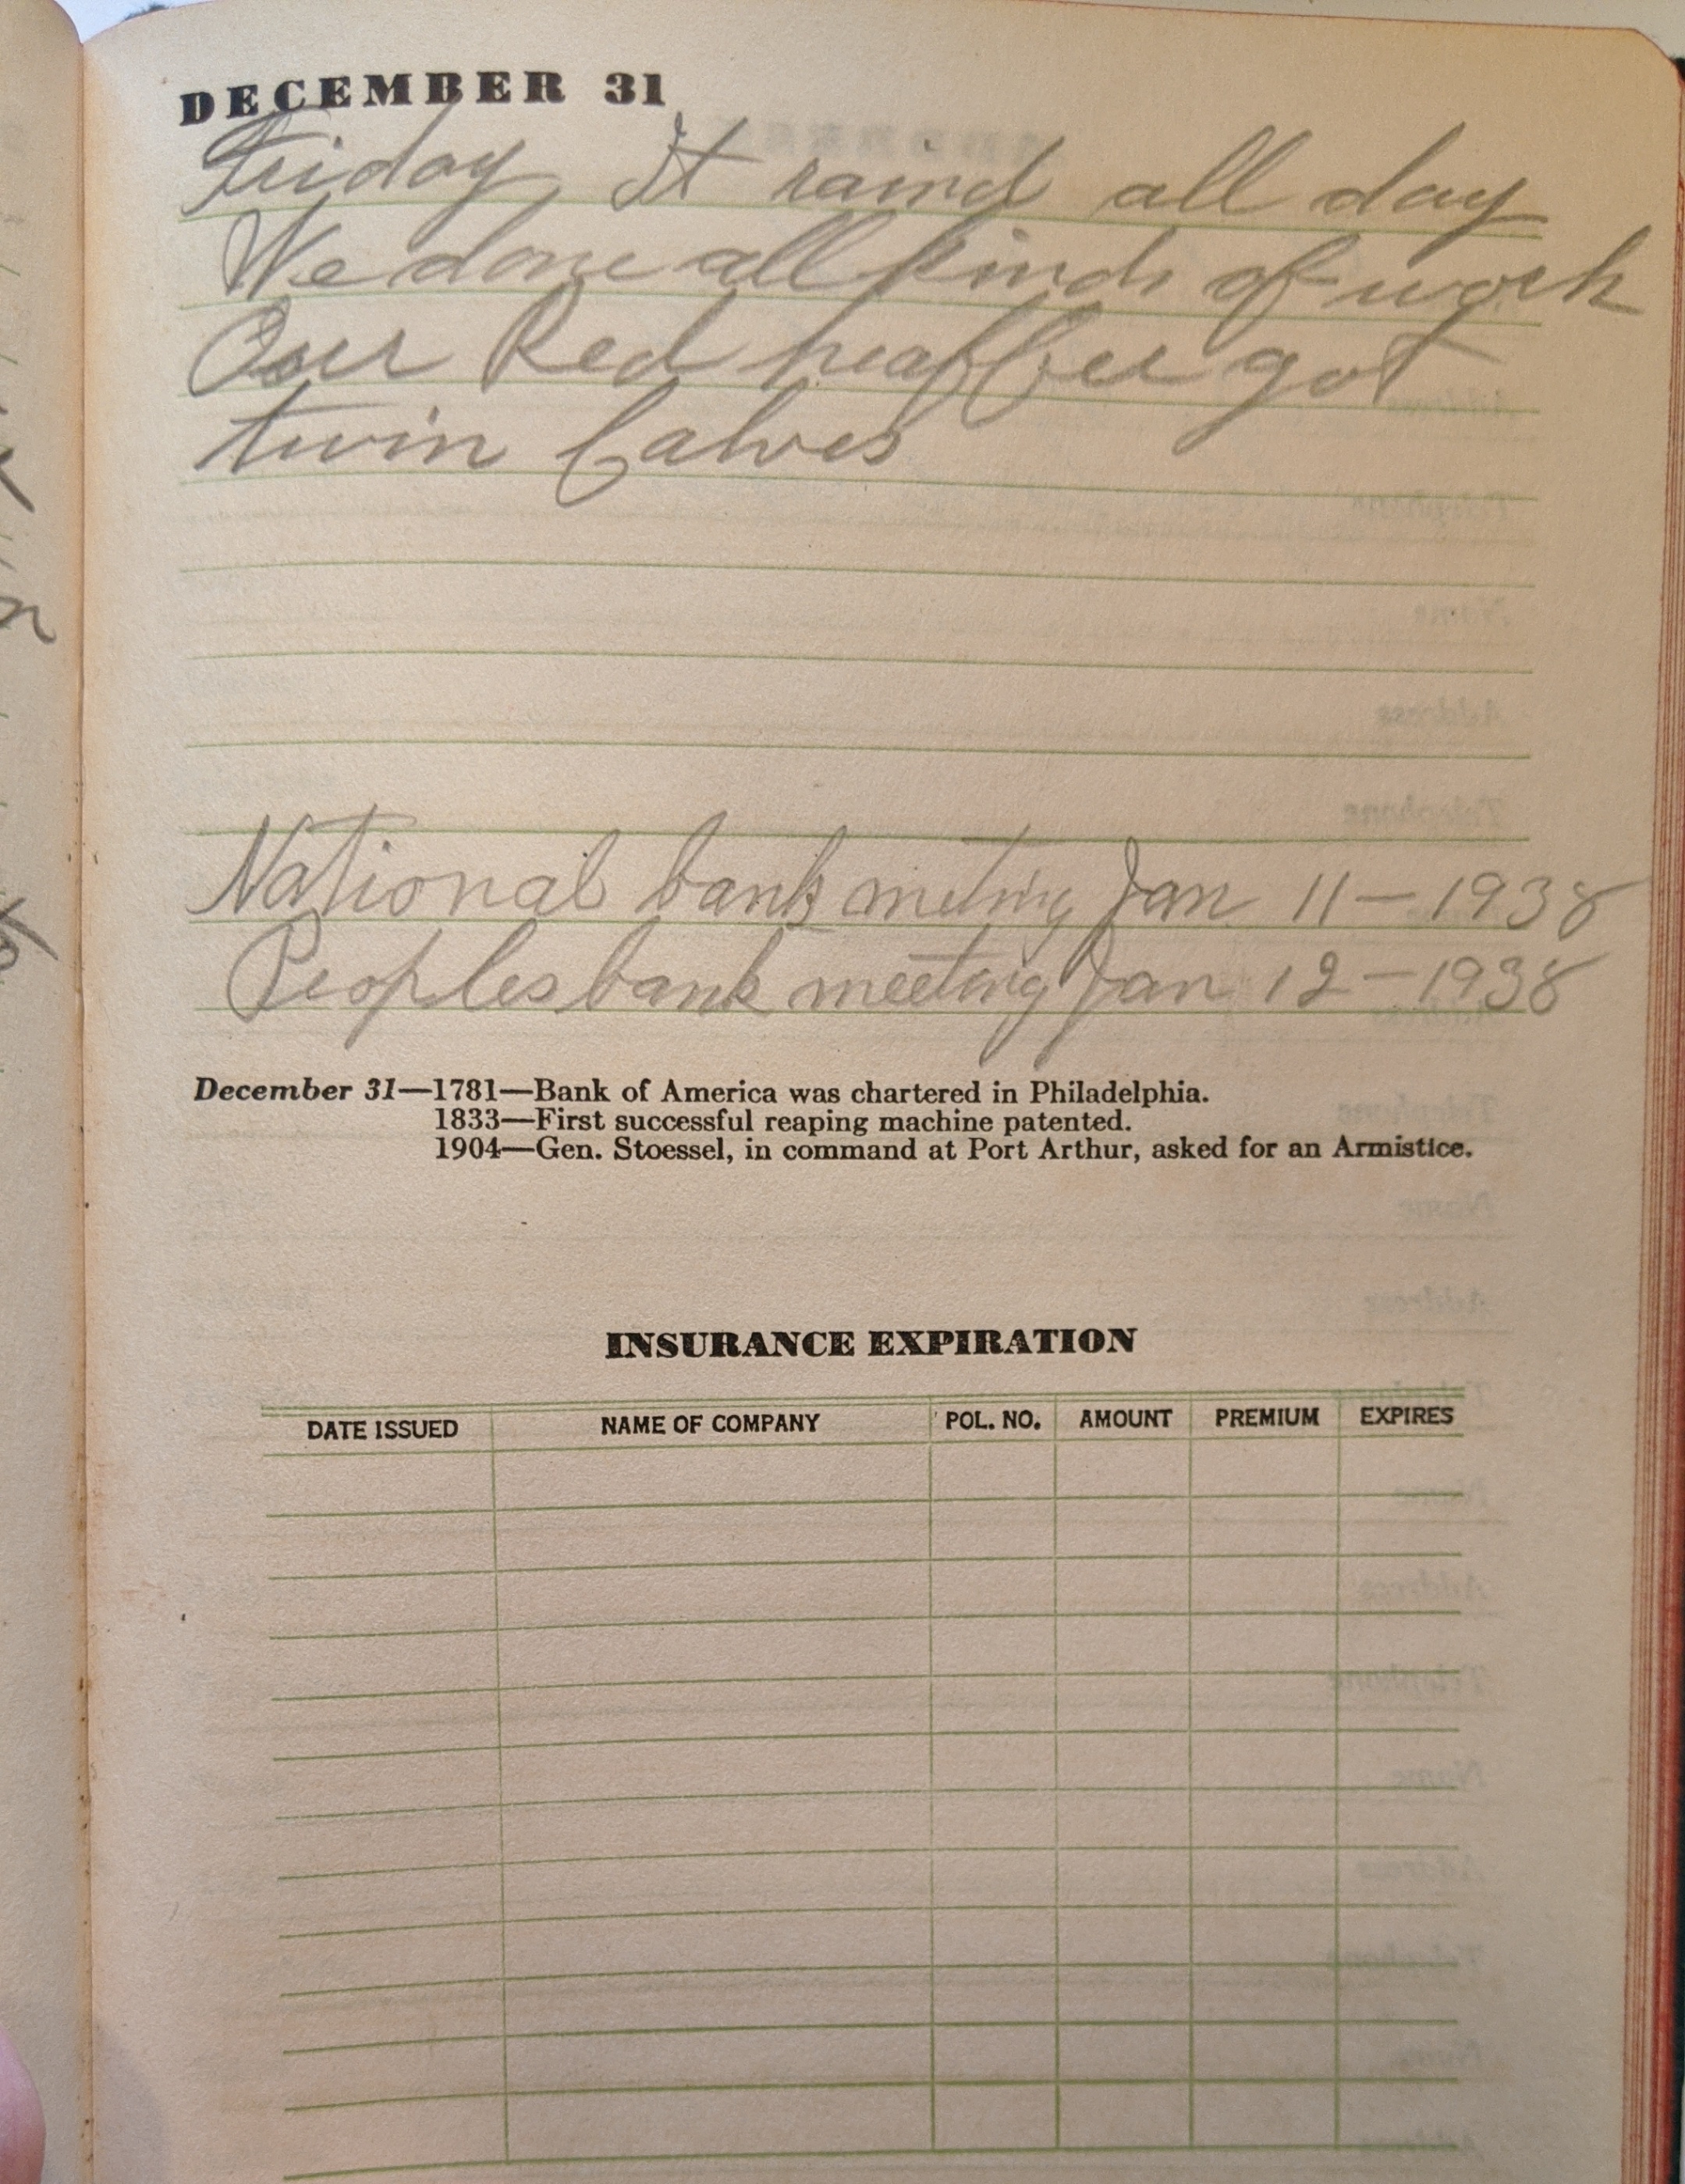 DECEMBER 31
Friday It raind all day
We done all kinds of work
Our Red heaffer got
twin Calves
National bank meting Jan 11 — 1938
Peoples bank meeting Jan 12 — 1938
December 31—1781—Bank of America was chartered in Philadelphia.
1833—First successful reaping machine patented.
1904—Gen. Stoessel, in command at Port Arthur, asked for an Armistice.
INSURANCE EXPIRATION
DATE ISSUED NAME OF COMPANY POL. NO. AMOUNT PREMIUM EXPIRES